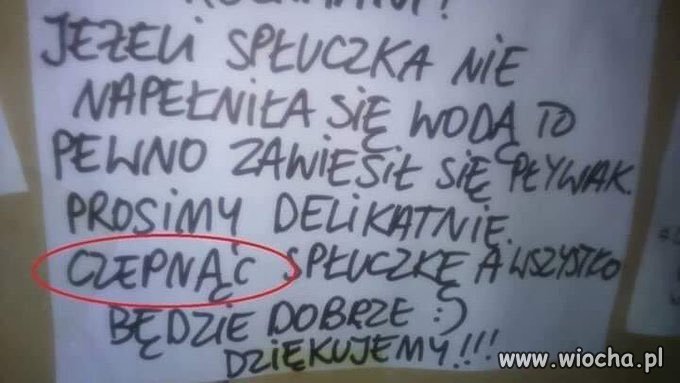 JEŻELI SPŁUCZKA NIE
NAPEŁNIŁA SIĘ WODĄ TO
PEWNO ZAWIESIŁ SIĘ PŁYWAK.
PROSIMY DELIKATNIE
CZEPNĄĆ SPŁUCZKĘ A WSZYSTKO
BĘDZIE DOBRZE :)
DZIĘKUJEMY!!!
www.wiocha.pl